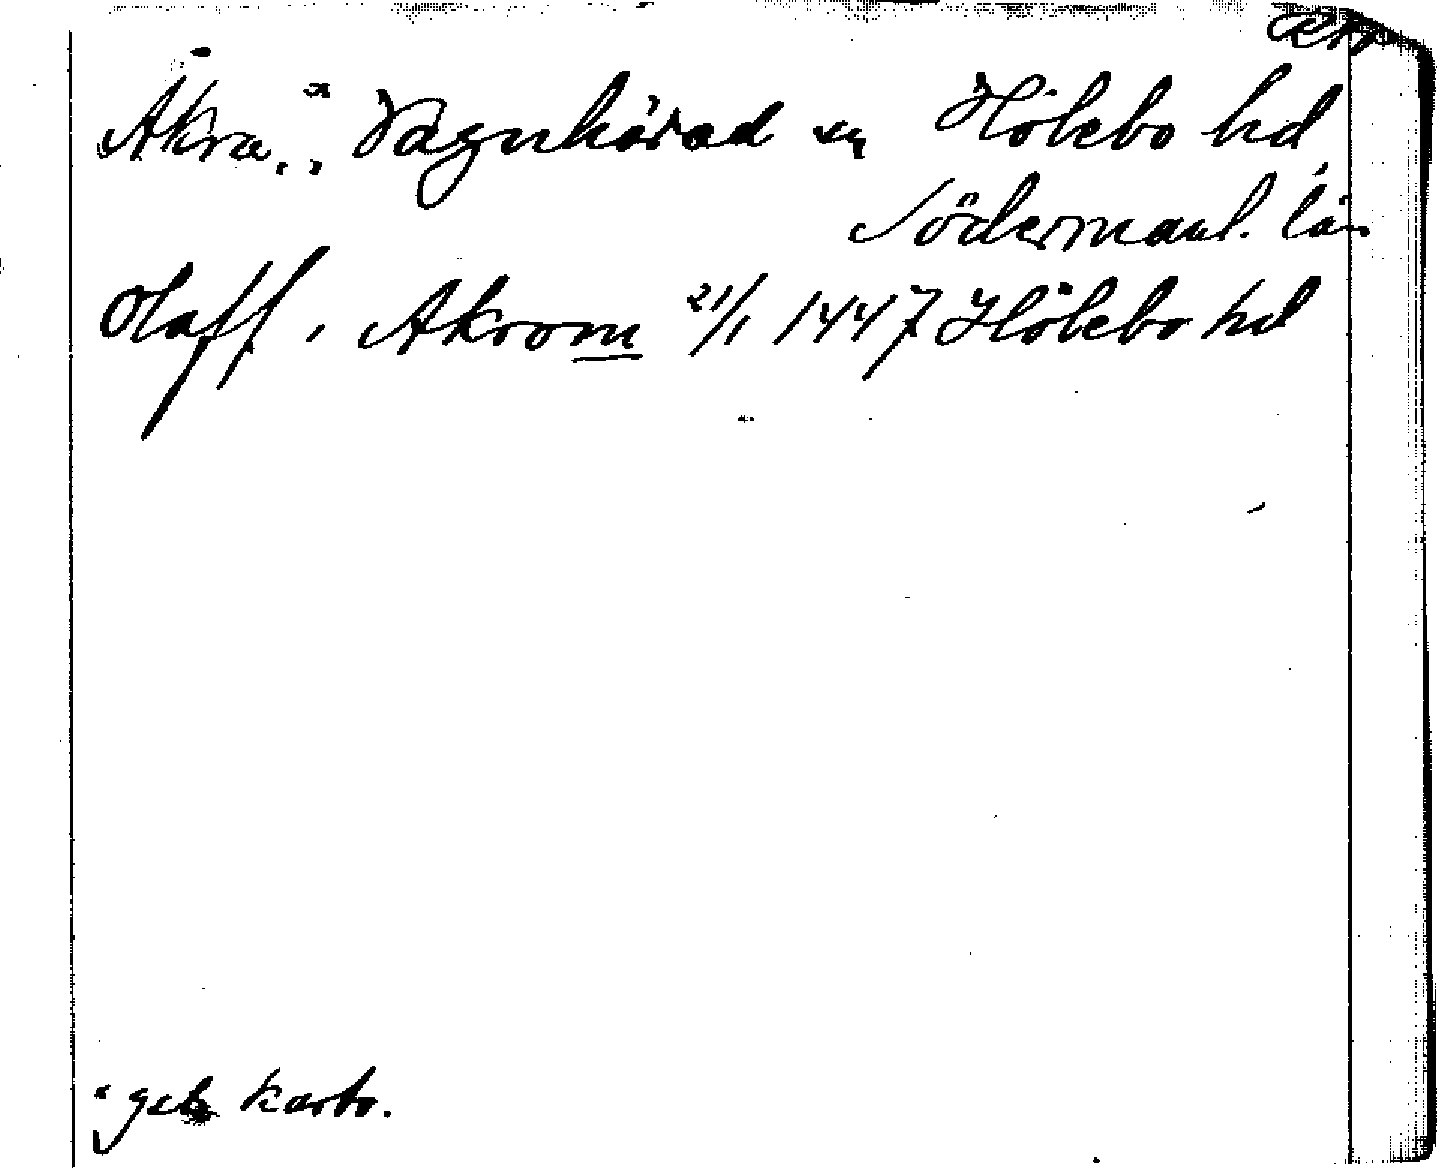 Åkra, Vagnhärad sn Hölebo hd,
Södermanl. län
Olaff i Akrom 21/1 1447 Hölebo hd
karto.